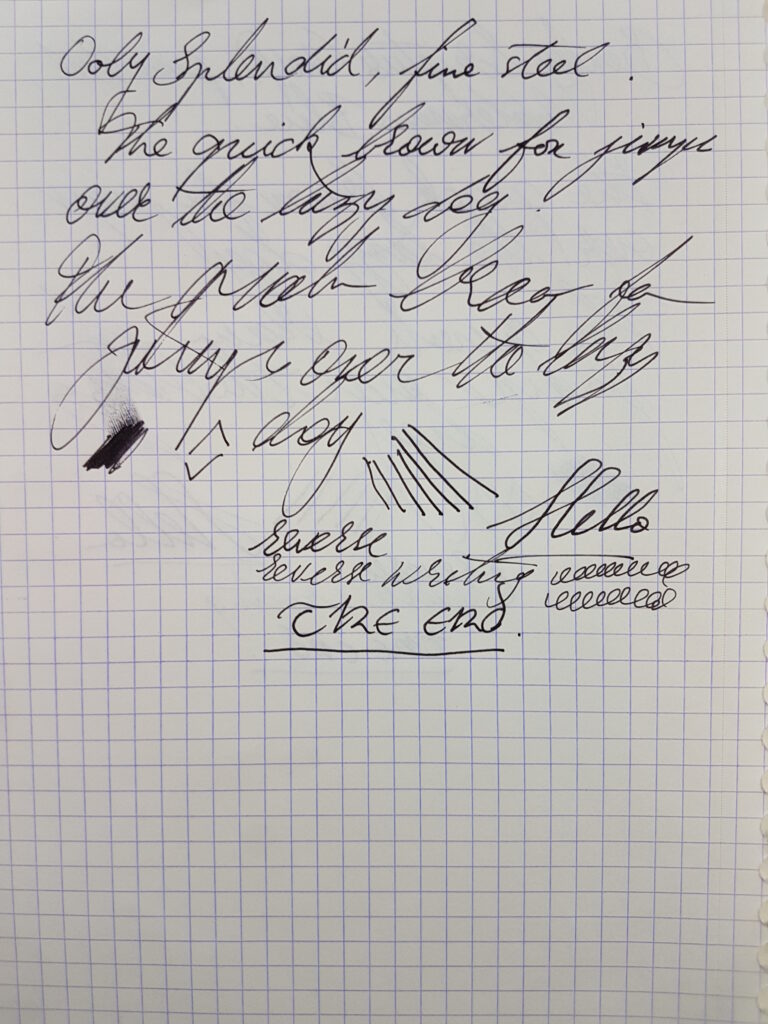 Ooly Splendid, fine steel.
The quick brown fox jumps
over the lazy dog.
The quick brown fox
jumps over the lazy
dog
Hello
reverse
reverse writing
The end.